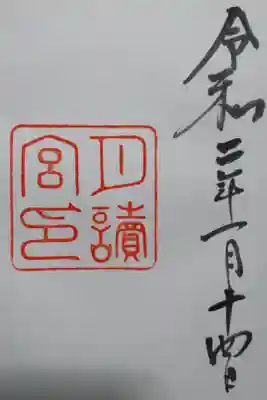 令和二年一月十四日
月讀
宮印